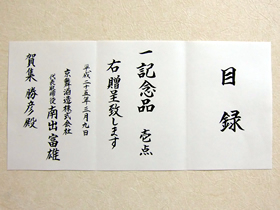 目録
一記念品 壱点
右贈呈致します
平成二十五年三月九日
京舞酒造株式会社
代表取締役 南出富雄
賀集勝彦殿